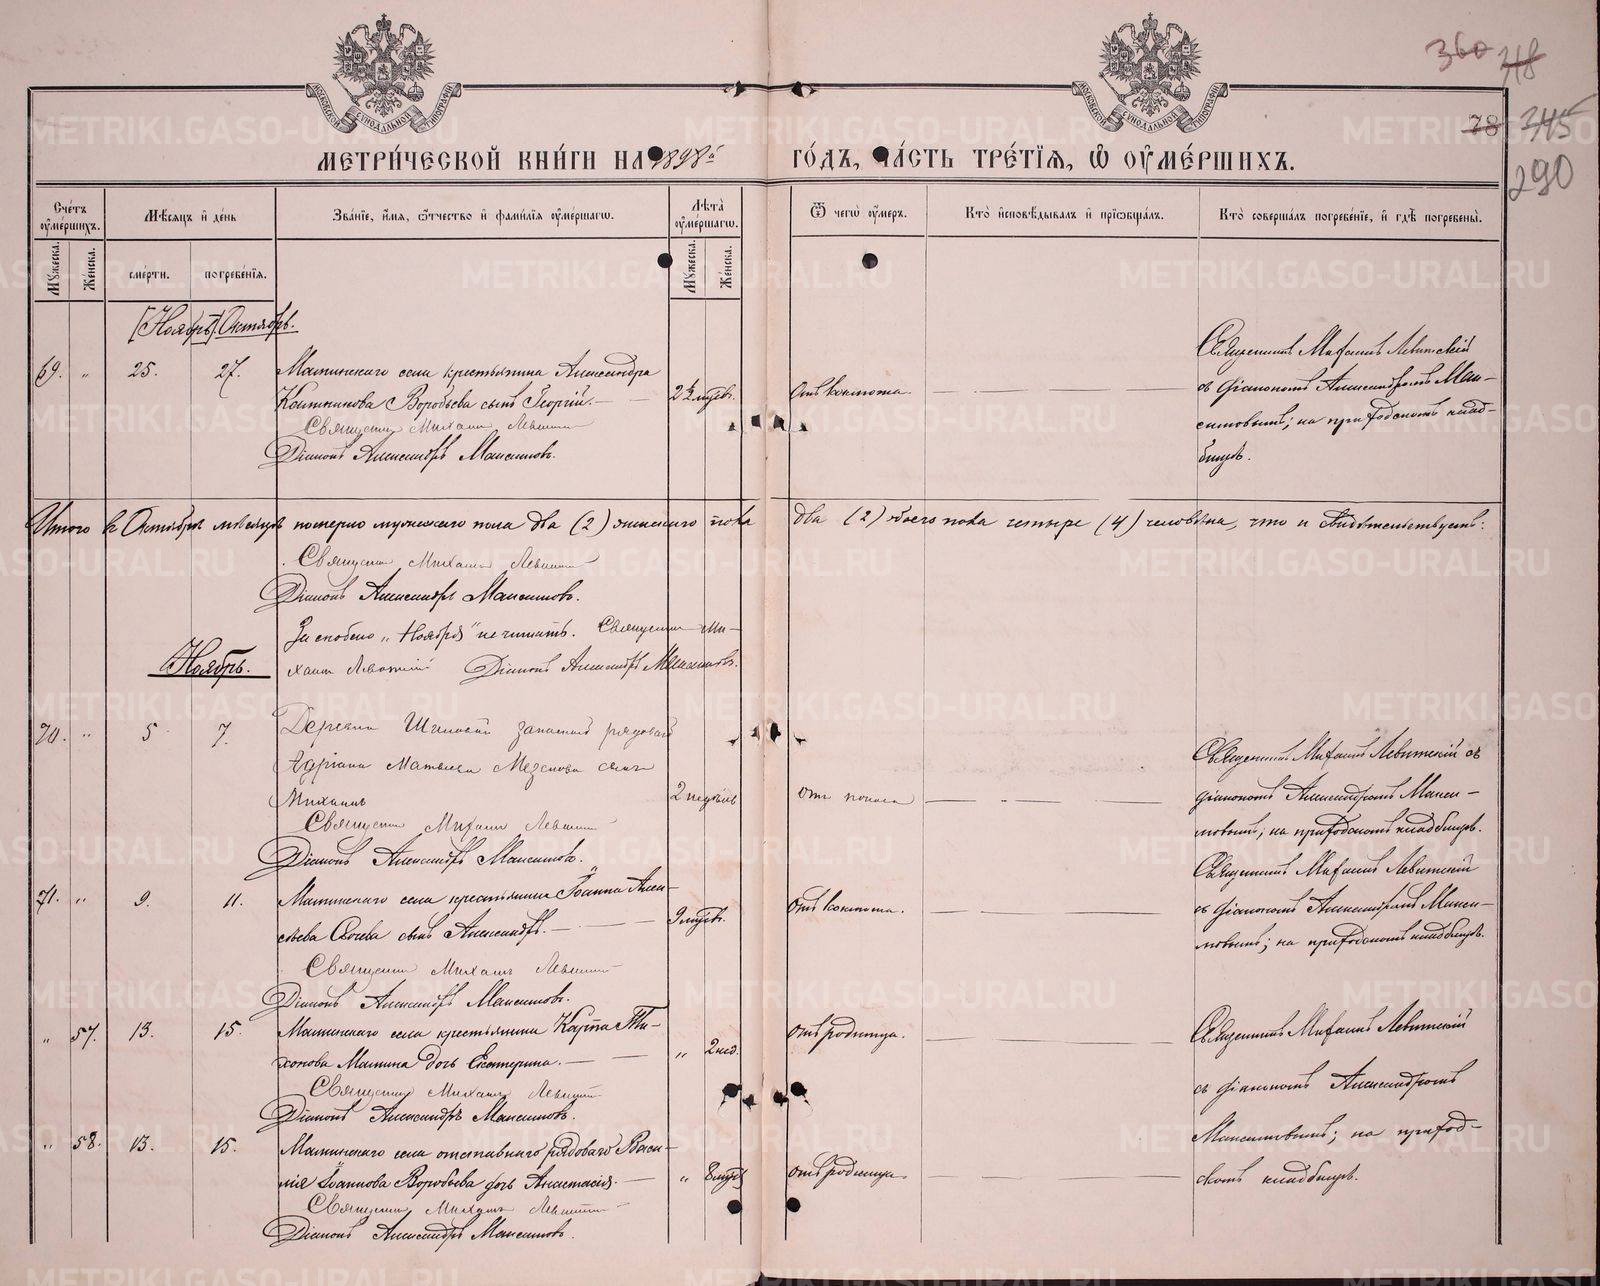 360 318
78 345
290
МОСКОВСКОЙ СѴНОДАЛЬНОЙ ТИПОГРАФІИ
МОСКОВСКОЙ СѴНОДАЛЬНОЙ ТИПОГРАФІИ
МЕТРИ́ЧЕСКОЙ КНИ́ГИ НА 1898й ГО́ДЪ, ЧА́СТЬ ТРЕ́ТІѦ, Ѽ ОУ҆МЕ́РШИХЪ.
Сче́тъ оу҆ме́ршихъ.
Му́жеска.
Же́нска.
Мѣ́сяцъ и҆ де́нь
сме́рти.
погребе́нія.
Зва́ніе, и҆́мя, ѻ҆́тчество и҆ фами́лія оу҆ме́ршагѡ.
Лѣ́та оу҆ме́ршагѡ.
Му́жеска.
Же́нска.
Ѿ чегѡ̀ оу҆́меръ.
Кто̀ и҆сповѣ́дывалъ и҆ пріѡбща́лъ.
Кто̀ соверша́лъ погребе́ніе, и҆ гдѣ̀ погребены̀.
[Ноябрь] Октябрь.
69. „ 25. 27. Маминскаго села крестьянина Александра
Воробьева сынъ Георгій. —
Священникъ Михаилъ Левитскій
Діаконъ Александръ Максимовъ.
Отъ коклюша.
Священникъ Михаилъ Левитскій
съ діакономъ Александромъ Мак-
симовымъ; на приходскомъ клад-
бищѣ.
Итого въ Октябрѣ мѣсяцѣ померло мужескаго пола два (2) женскаго пола два (2) обоего пола четыре (4) человѣка, что и свидѣтельствуемъ:
Священникъ Михаилъ Левитскій
Діаконъ Александръ Максимовъ.
За скобкою „Ноября" не читать. Священникъ Ми-
хаилъ Левитскій Діаконъ Александръ Максимовъ.
Ноябрь.
70. „ 5 7. Деревни запасный рядоваго
Адріана Матвѣева Мезенова сынъ
Михаилъ
2 недѣль
Священникъ Михаилъ Левитскій
Діаконъ Александръ Максимовъ.
Отъ поноса
Священникъ Михаилъ Левитскій съ
діакономъ Александромъ Макси-
мовымъ; на приходскомъ кладбищѣ.
71. „ 9. 11. Маминскаго села крестьянина Іоанна Алек-
сѣева сынъ Александръ. —
9 мѣсяц.
Священникъ Михаилъ Левитскій
Діаконъ Александръ Максимовъ.
Отъ коклюша.
Священникъ Михаилъ Левитскій
съ діакономъ Александромъ Макси-
мовымъ; на приходскомъ кладбищѣ.
„ 57. 13. 15. Маминскаго села крестьянина Карпа Ти-
хонова Мамина дочь Екатерина. —
„ 2 нед.
Священникъ Михаилъ Левитскій
Діаконъ Александръ Максимовъ.
Отъ родимца.
Священникъ Михаилъ Левитскій
съ діакономъ Александромъ
Максимовымъ; на приход-
скомъ кладбищѣ.
„ 58. 13. 15. Маминскаго села отставнаго рядоваго Васи-
лія Іоаннова Воробьева дочь Анастасія. —
Священникъ Михаилъ Левитскій
Діаконъ Александръ Максимовъ.
Отъ родимца.
METRIKI.GASO-URAL.RU